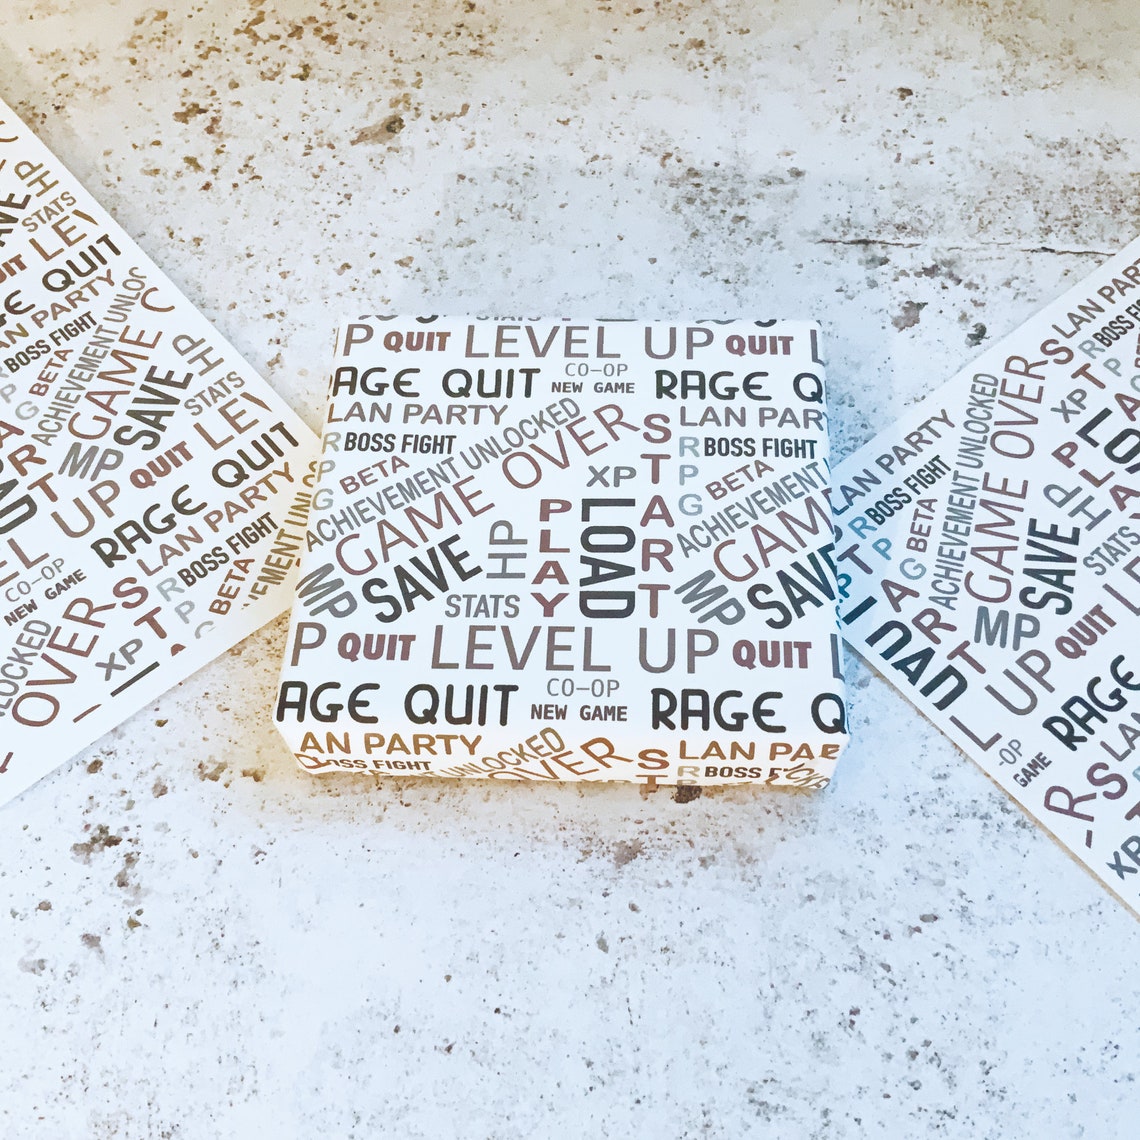 HP
STATS
QUIT
RAGE QUIT
LAN PARTY
BOSS FIGHT
BETA
GAME
SAVE
HP
STATS
ACHIEVEMENT UNLOC
MP
QUIT
UP
RAGE QUIT
LAN PARTY
BOSS FIGHT
BETA
CO-OP
NEW GAME
OVER
XP
P QUIT LEVEL UP QUIT L
AGE QUIT CO-OP RAGE Q
NEW GAME
LAN PARTY LAN PARTY
BOSS FIGHT BOSS FIGHT
RPG
BETA
ACHIEVEMENT UNLOCKED
GAME OVER
START
XP
PLAY
LOAD
HP
SAVE
MP
STATS
RPG
BETA
ACHIEVEMENT
GAME
MP
SAVE
P QUIT LEVEL UP QUIT L
AGE QUIT CO-OP RAGE Q
NEW GAME
AN PARTY UNLOCKED LAN PAR
BOSS FIGHT OVER BOSS
LAN PARTY
BOSS FIGHT
RPG
BETA
ACHIEVEMENT UNLOCKED
GAME OVER
XP
HP
SAVE
MP
STATS
UP
QUIT
RAGE
-OP
GAME
LAN PARTY
BOSS FIGHT
XP